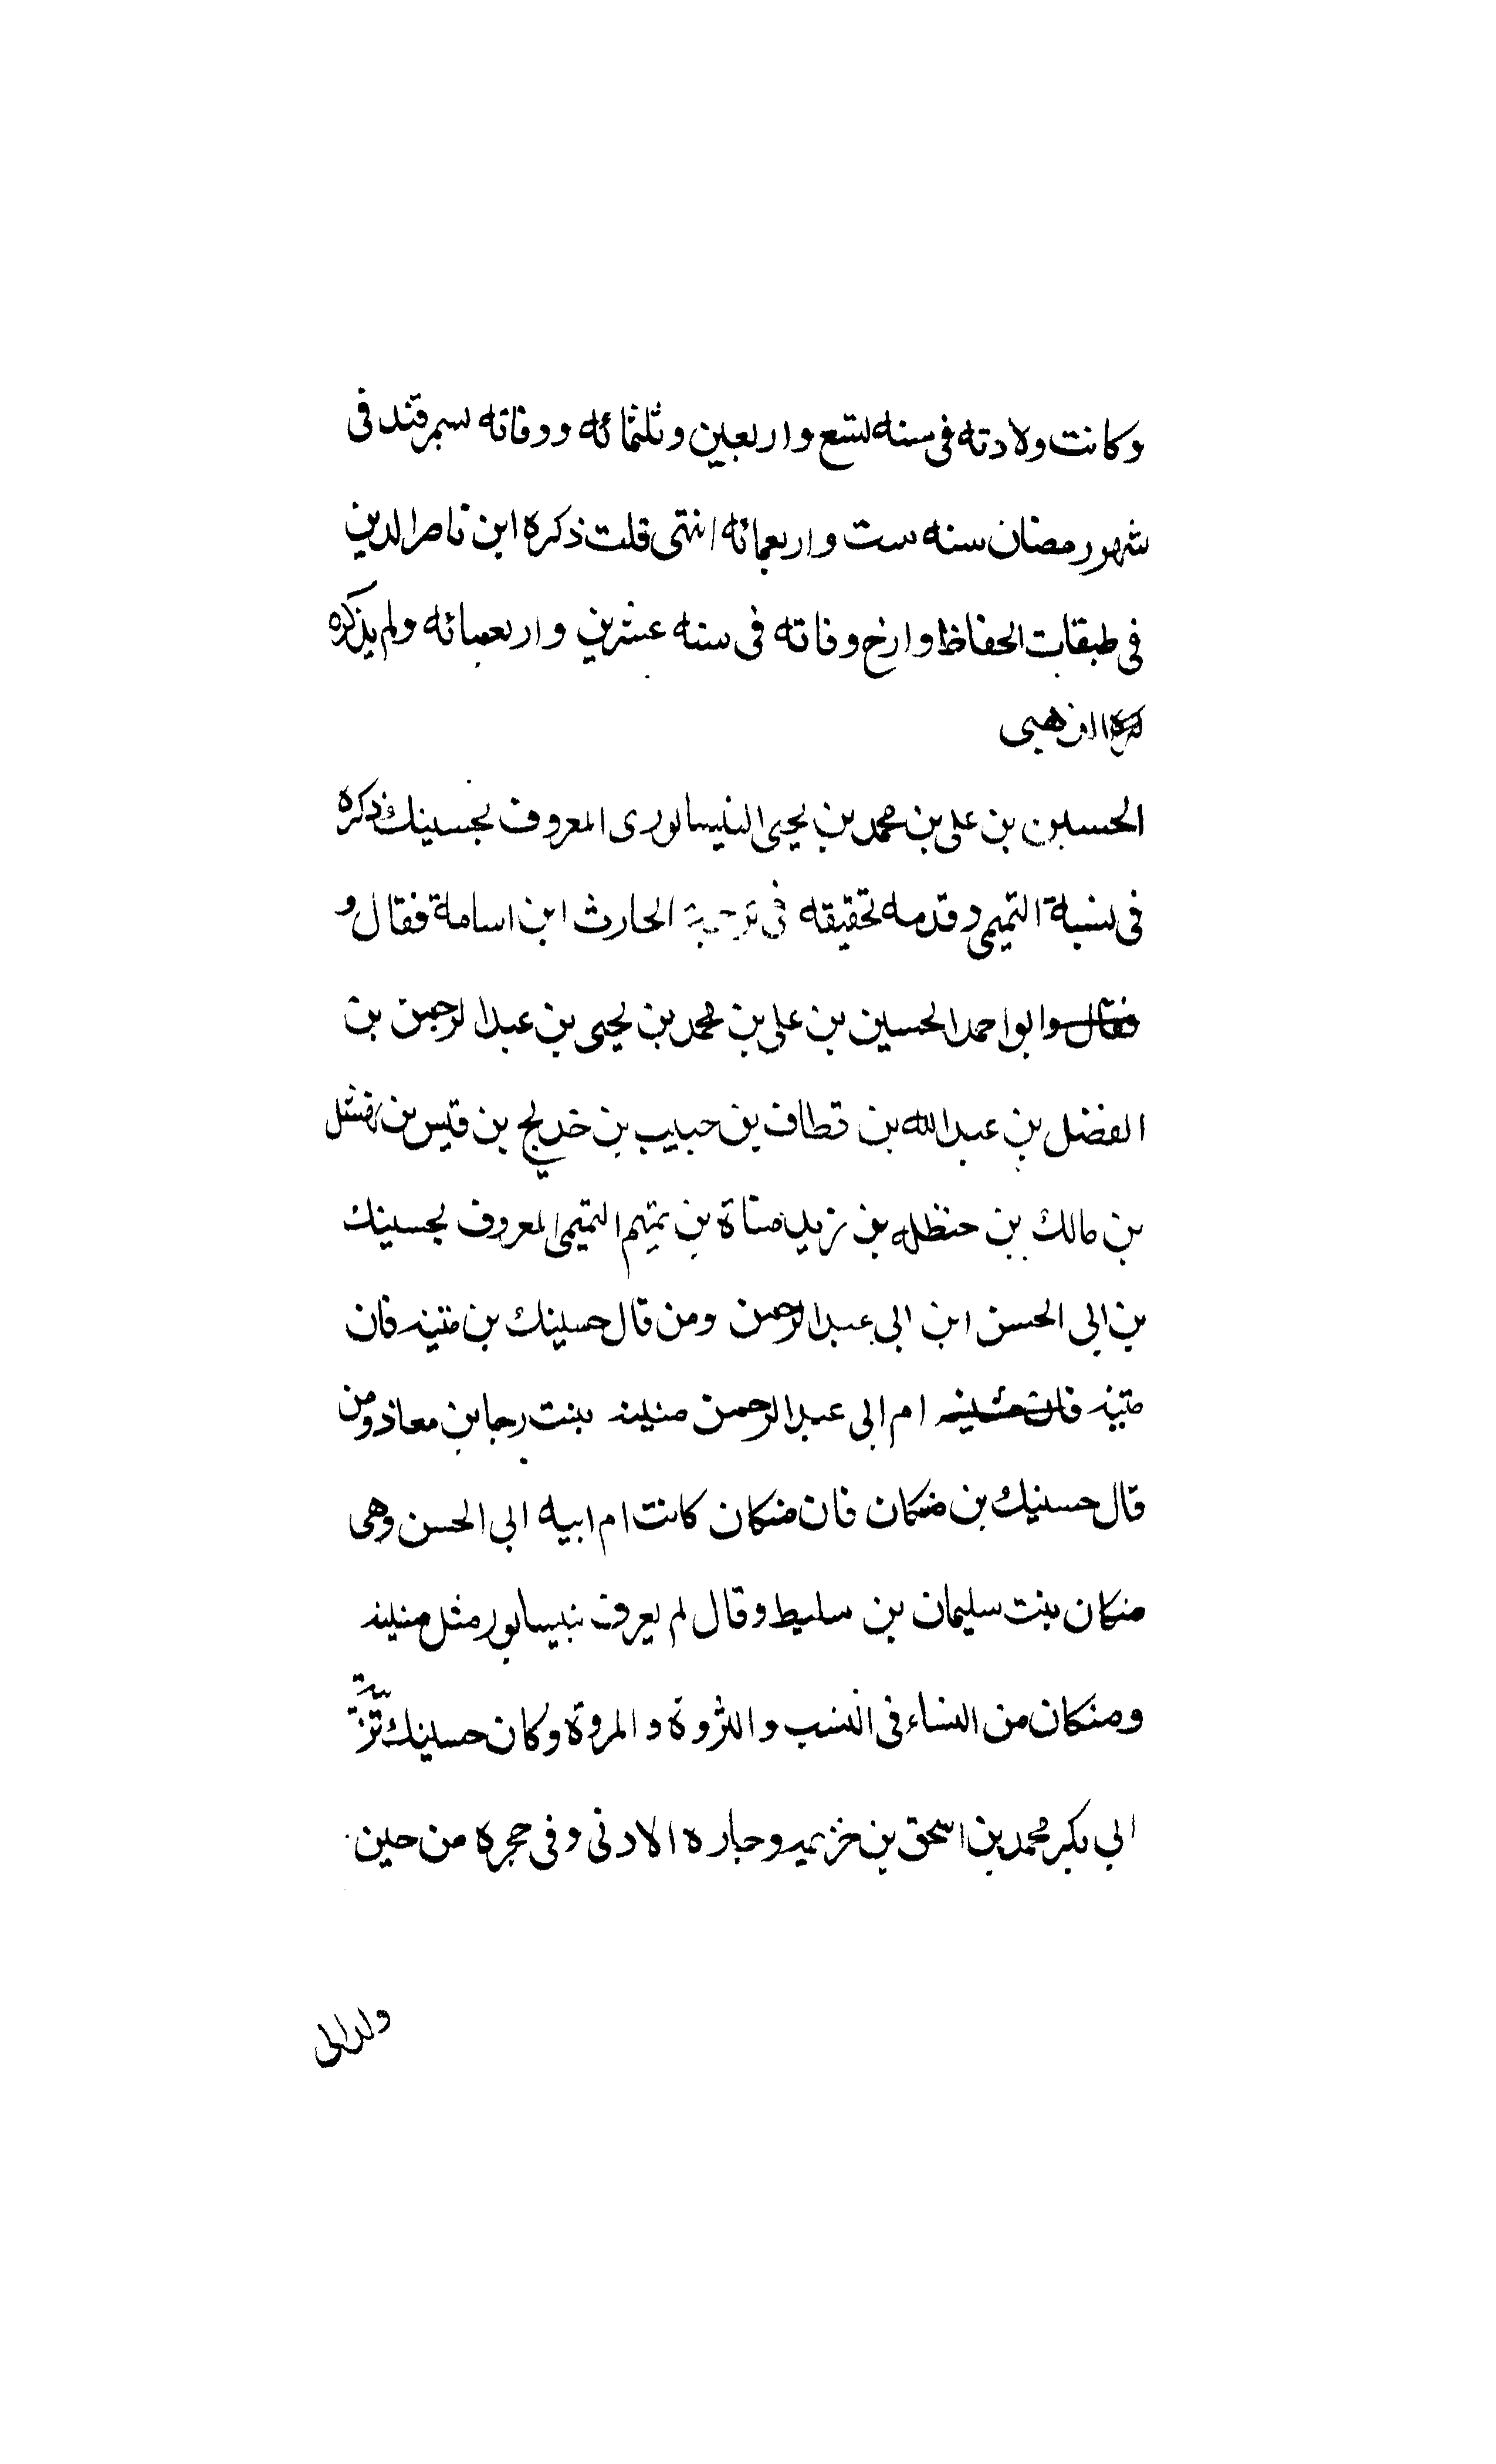 وكانت ولادته فى سنه تسع واربعين وثلثمائه ووفاته سمرقند فى
شهور رمضان سنه ست واربعمائه انتهى قلت ذكره ابن ناصر الدين
فى طبقات الحفاظ وارخ وفاته فى سنه عشرين واربعمائه ولم يذكره
الذهبى
الحسين بن على بن محمد بن يحيى النيسابورى المعروف بحسينك ذكره
فى نسبة التميمى وقدمه تحقيقه فى ترجمة الحارث ابن اسامة فقال و
فقال وابو احمد الحسين بن على بن محمد بن يحيى بن عبدالرحمن بن
الفضل بن عبدالله بن قطاف بن حبيب بن خديج بن قيس بن نهشل
بن مالك بن حنظله بن زيد مناة بن تميم التميمى المعروف بحسينك
بن ابى الحسن ابن ابى عبدالرحمن ومن قال حسينك بن متينه فان
متينه فان ام ابى عبدالرحمن منينه بنت رجا بن معاذ ومن
قال حسنيك بن منكان فان منكان كانت ام ابيه ابى الحسن وهى
منكان بنت سليمان بن سليط وقال لم يعرف بنيسابور مثل منينه
ومنكان من النساء فى النسب والثروة والمروة وكان حسينك تربية
ابى بكر محمد بن اسحق بن خزيمه وجاره الادنى وفى حجره من حين
ولد الى